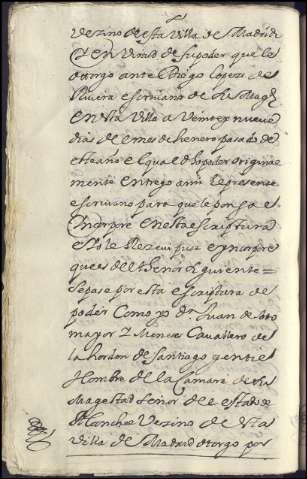 Vezino desta Villa de Madrid
y en Virtud de su poder que le
otorgo ante Diego Lopez de
Riviera escrivano de Su Magd
en esta Villa a Veinte y nueve
dias del mes de henero pasado de
este ano el qual dho poder origina
mente entrego a mi el presente
escrivano para que le ponga e
yncorpore en esta escriptura
e yo le Recevi puse e yncorpore
que es del thenor siguiente =
Sepase por esta escriptura de
poder Como yo dn Juan de soto
mayor Meneses Cavallero de
la horden de Santiago gentil
hombre de la Camara de su
Magestad Señor del estado de
Vezino de esta
Villa de Madrid otorgo por